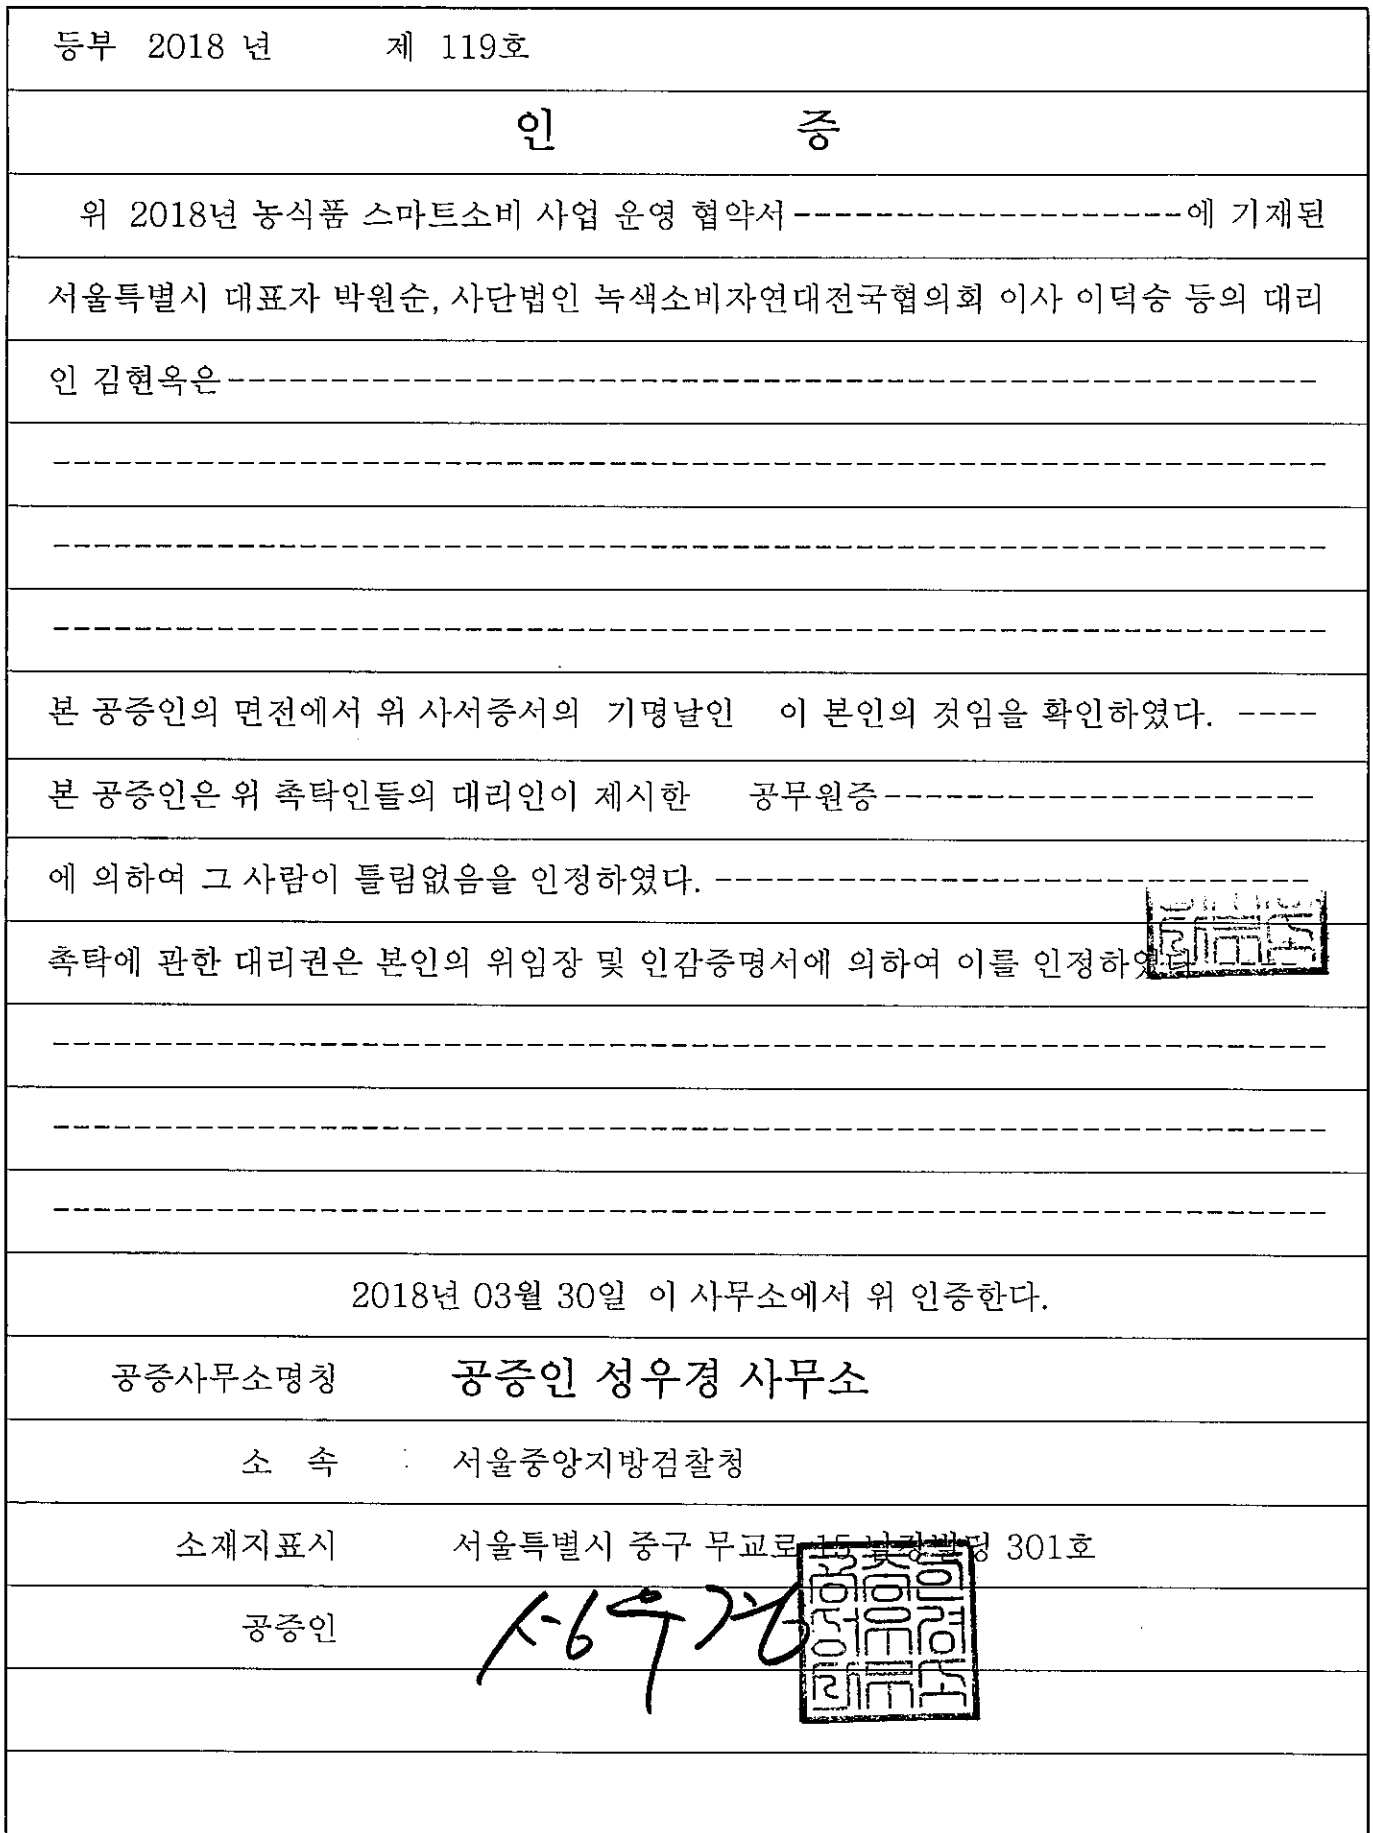 등부 2018 년 제 119호
인 증
위 2018년 농식품 스마트소비 사업 운영 협약서-------------------에 기재된
서울특별시 대표자 박원순, 사단법인 녹색소비자연대전국협의회 이사 이덕승 등의 대리
인 김현옥은-----------------------------------------------------
--------------------------------------------------------------
--------------------------------------------------------------
--------------------------------------------------------------
본 공증인의 면전에서 위 사서증서의 기명날인 이 본인의 것임을 확인하였다. ----
본 공증인은 위 촉탁인들의 대리인이 제시한 공무원증---------------------
에 의하여 그 사람이 틀림없음을 인정하였다. -----------------------------
촉탁에 관한 대리권은 본인의 위임장 및 인감증명서에 의하여 이를 인정하였다
--------------------------------------------------------------
--------------------------------------------------------------
--------------------------------------------------------------
2018년 03월 30일 이 사무소에서 위 인증한다.
공증사무소명칭 공증인 성우경 사무소
소 속 서울중앙지방검찰청
소재지표시 서울특별시 중구 무교로 15 301호
공증인 성우경